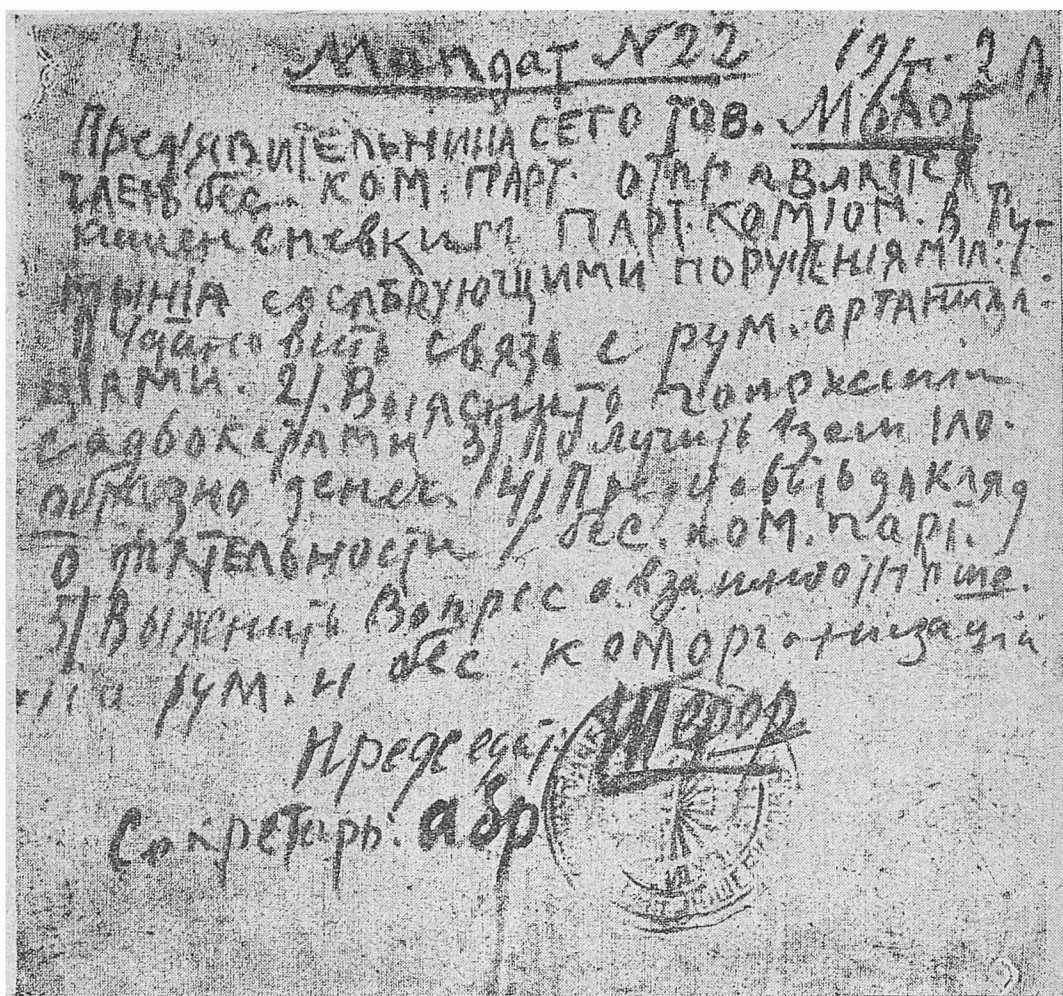 Мандат N22 19/I - 2
Пред'явительница сего тов. Молот
членъ бес. ком. парт. отправляется
кишеневским парт. комітом. в Ру-
мынія со слѣдующими порученіями:
1) Установить связь с рум. организа-
ціями. 2). Выяснить
с адвокатами 3) Получить
образно денег. 4) Представить доклад
о деятельности бес. ком. парт.
5) Выяснить вопрос о взаимоотноше.
рум. и бес. к оморганизацій
Председат. Шефор
Секретарь: абр